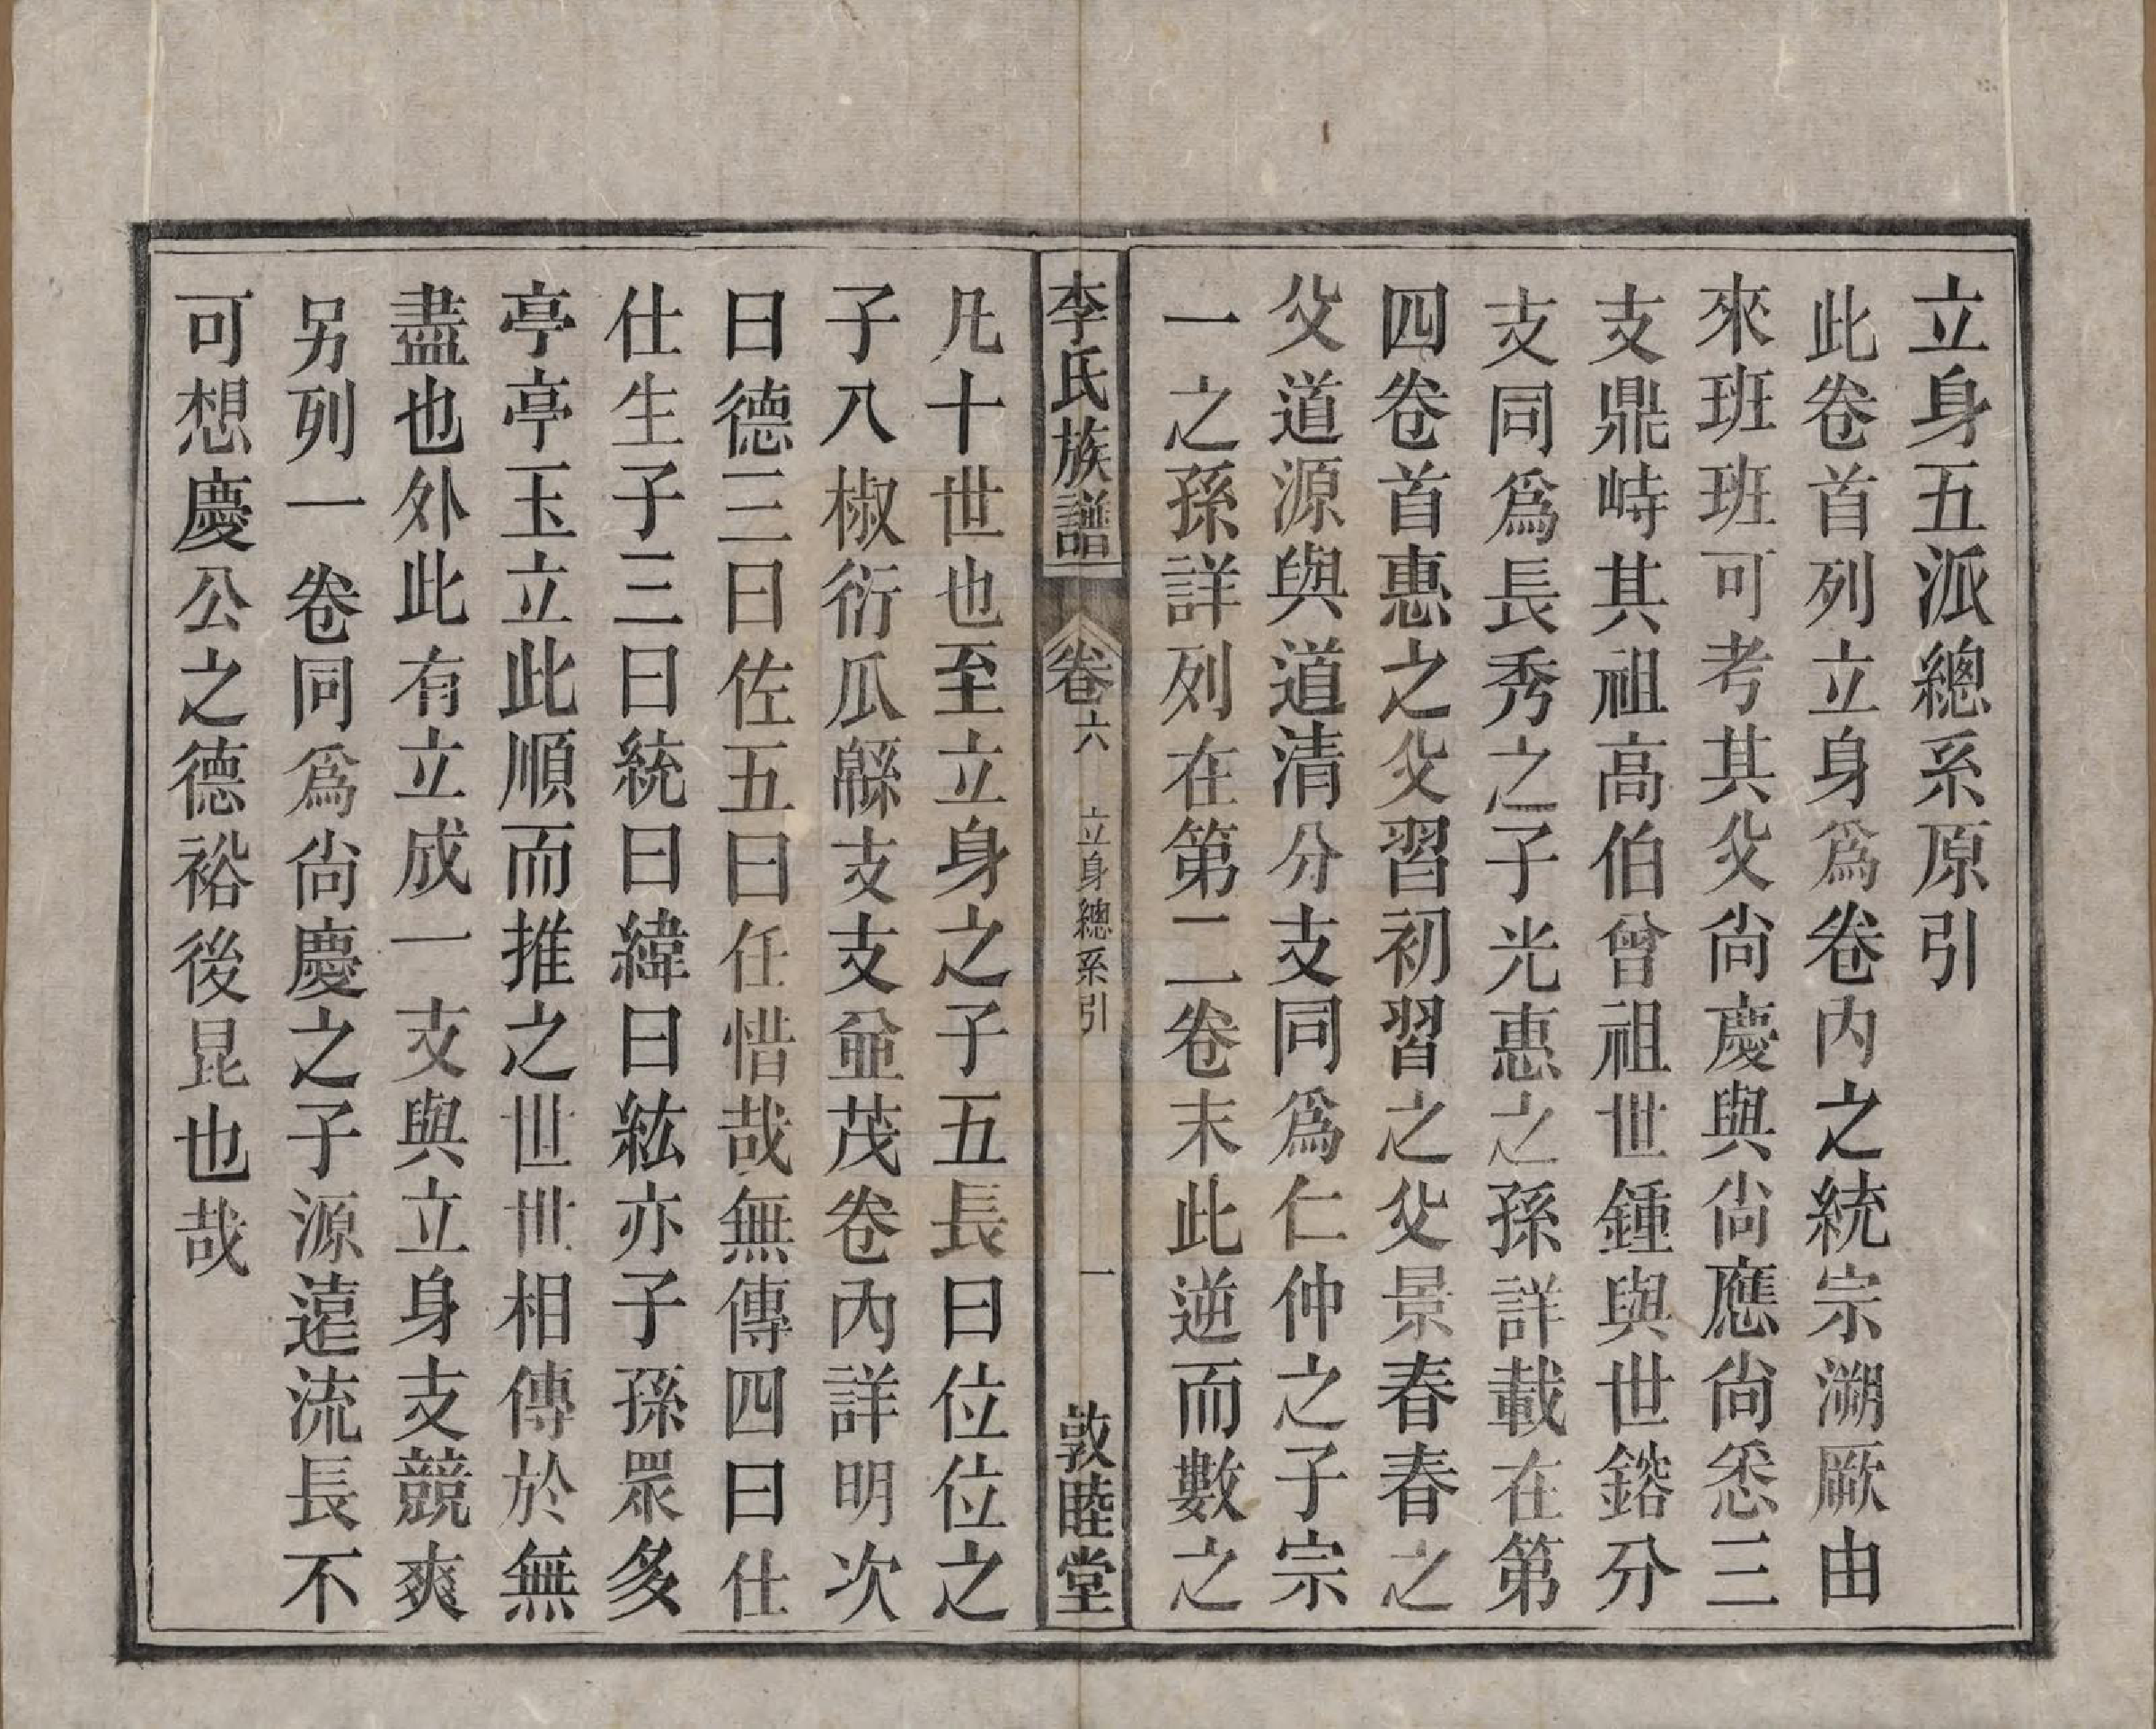 立身五派總系原引
此卷首列立身爲卷内之統宗溯厥由
來班班可考其父尙慶與尙應尙悉三
支鼎峙其祖高伯曾祖世鍾與世鎔分
支同爲長秀之子光惠之孫詳載在第
四卷首惠之父習初習之父景春春之
父道源與道清分支同爲仁仲之子宗
一之孫詳列在第二卷末此逆而數之
李氏族譜
卷六
立身總系引
一
敦睦堂
凡十世也至立身之子五長曰位位之
子八椒衍瓜緜支支並茂卷內詳明次
曰德三曰佐五曰任惜哉無傳四曰仕
仕生子三曰統曰緯曰紘亦子孫眾多
亭亭玉立此順而推之世世相傳於無
盡也外此有立成一支與立身支競爽
另列一卷同爲尙慶之子源遠流長不
可想慶公之德裕後昆也哉